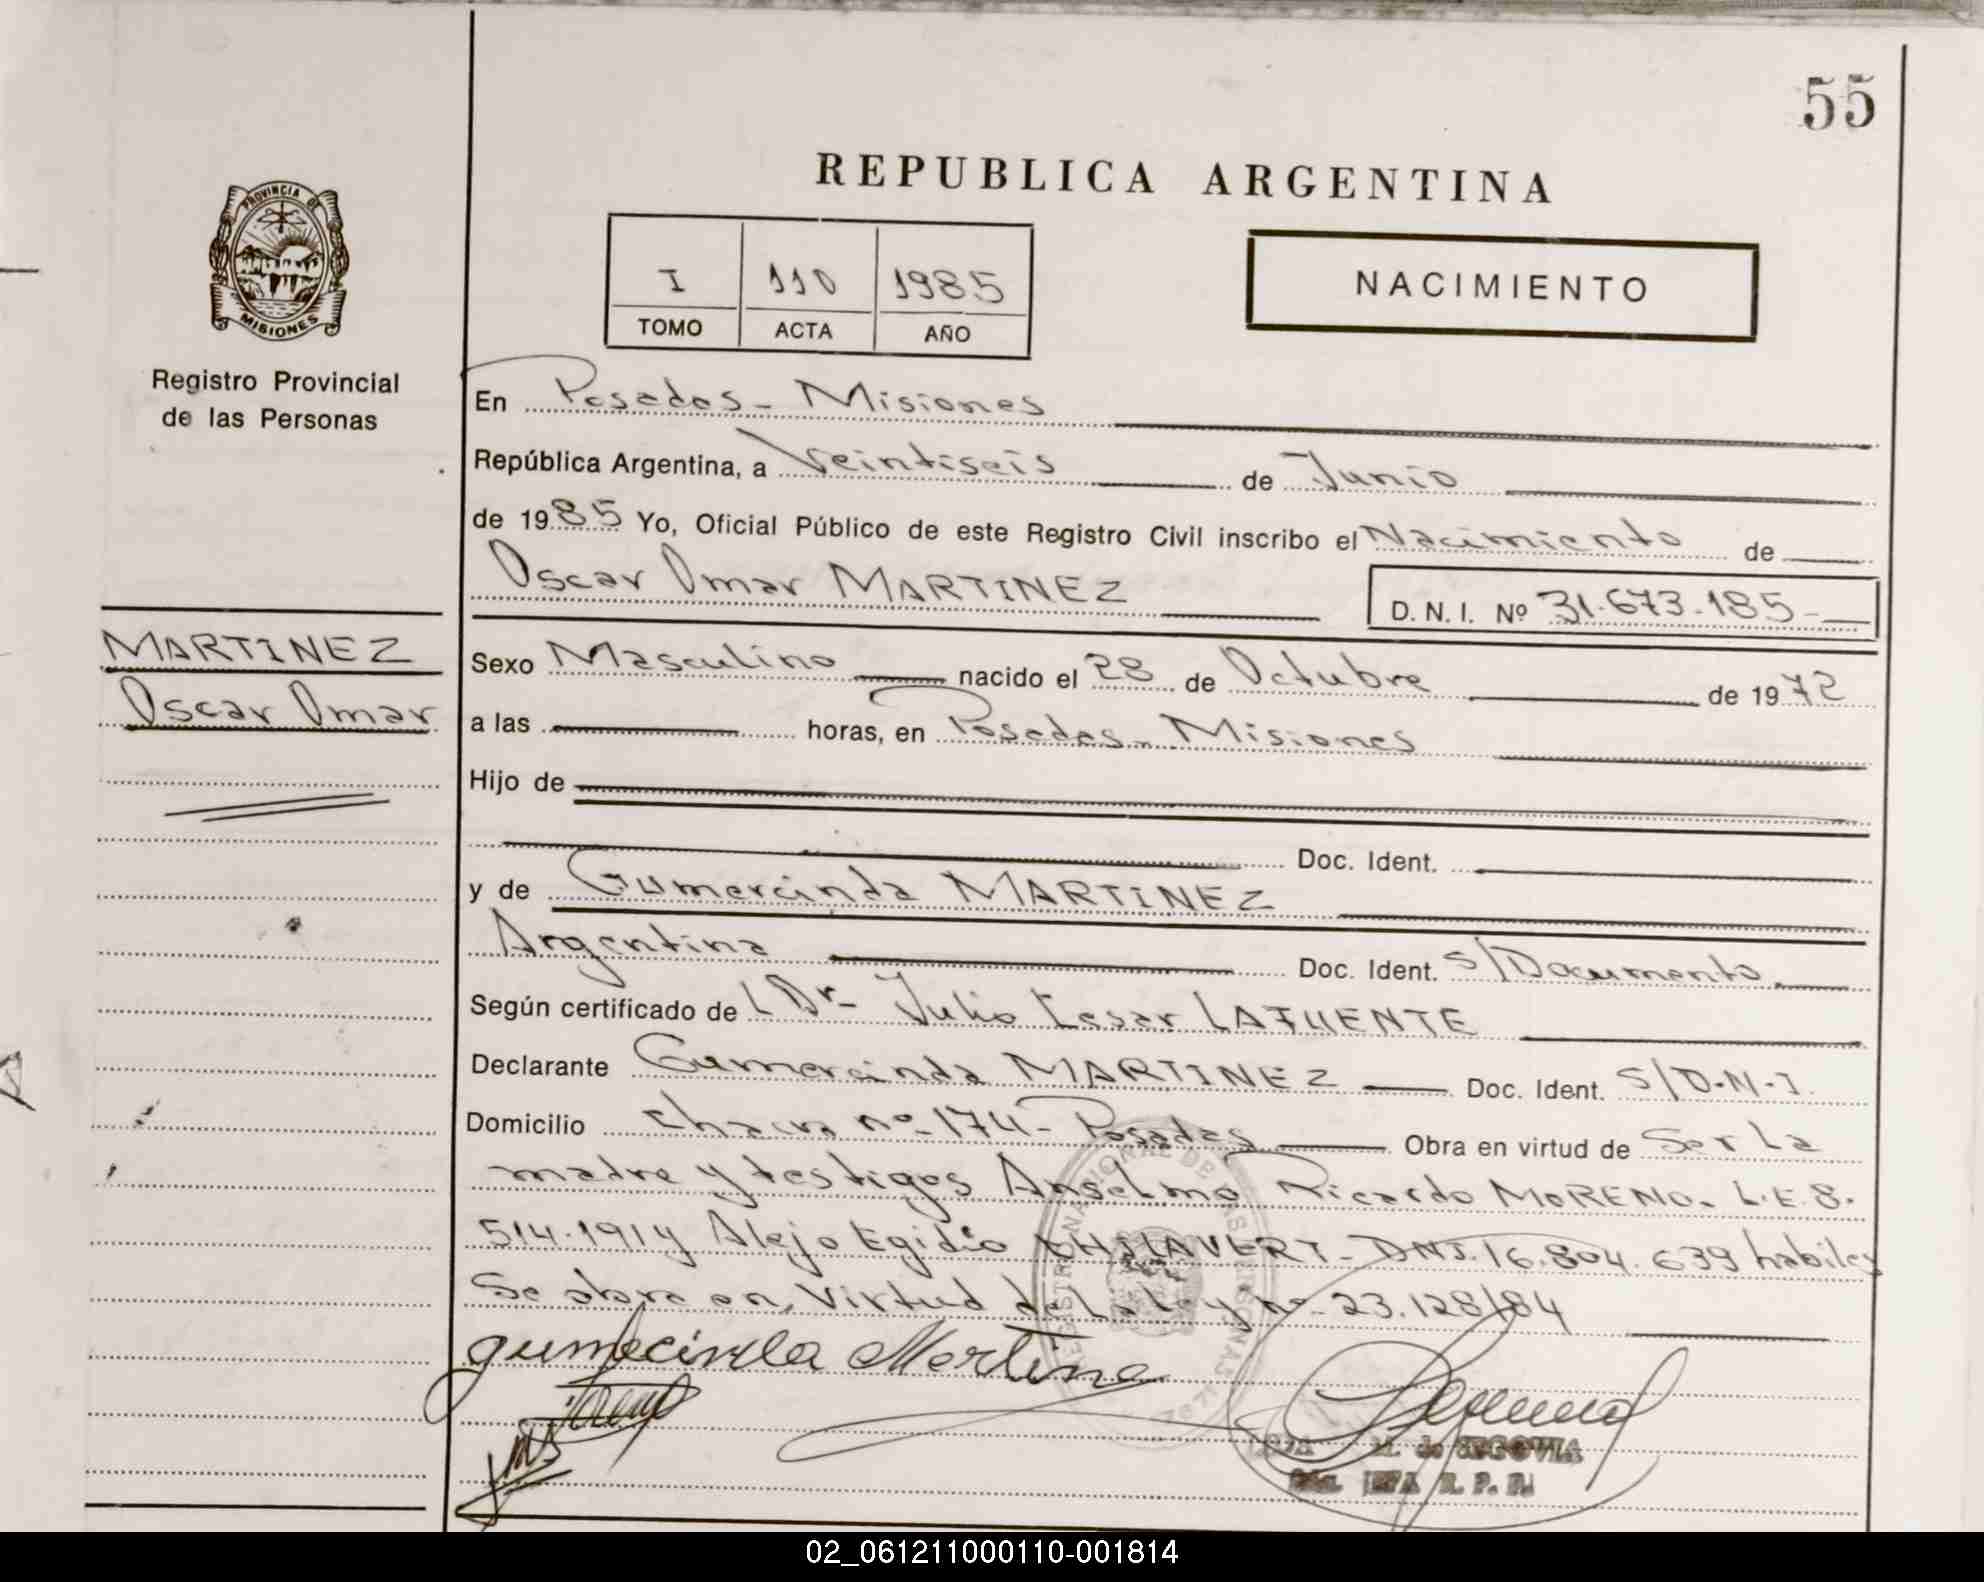 55
REPUBLICA ARGENTINA
PROVINCIA DE
MISIONES
Registro Provincial
de las Personas
I 110 1985
TOMO ACTA AÑO
NACIMIENTO
En Posadas - Misiones
República Argentina, a Veintiseis de Junio
de 1985 Yo, Oficial Público de este Registro Civil inscribo el Nacimiento de
Oscar Omar MARTINEZ
D. N. I. Nº 31.673.185
MARTINEZ
Oscar Omar
Sexo Masculino nacido el 28 de Octubre de 1972
a las horas, en Posadas - Misiones
Hijo de
Doc. Ident.
y de Gumercinda MARTINEZ
Argentina Doc. Ident. S/Documento
Según certificado de Dr- Julio Cesar LAFUENTE
Declarante Gumercinda MARTINEZ Doc. Ident. S/D.N.I.
Domicilio chacra nº 174 - Posadas Obra en virtud de Ser La
madre y testigos Anselmo Ricardo MORENO. L.E 8.
514.191 y Alejo Egidio DNI. 16.804.639 habiles
Se obra en Virtud de La Ley nº 23.128/84
gumecinda Martine
M. de SEGOVIA
R. P. P.
02_061211000110-001814